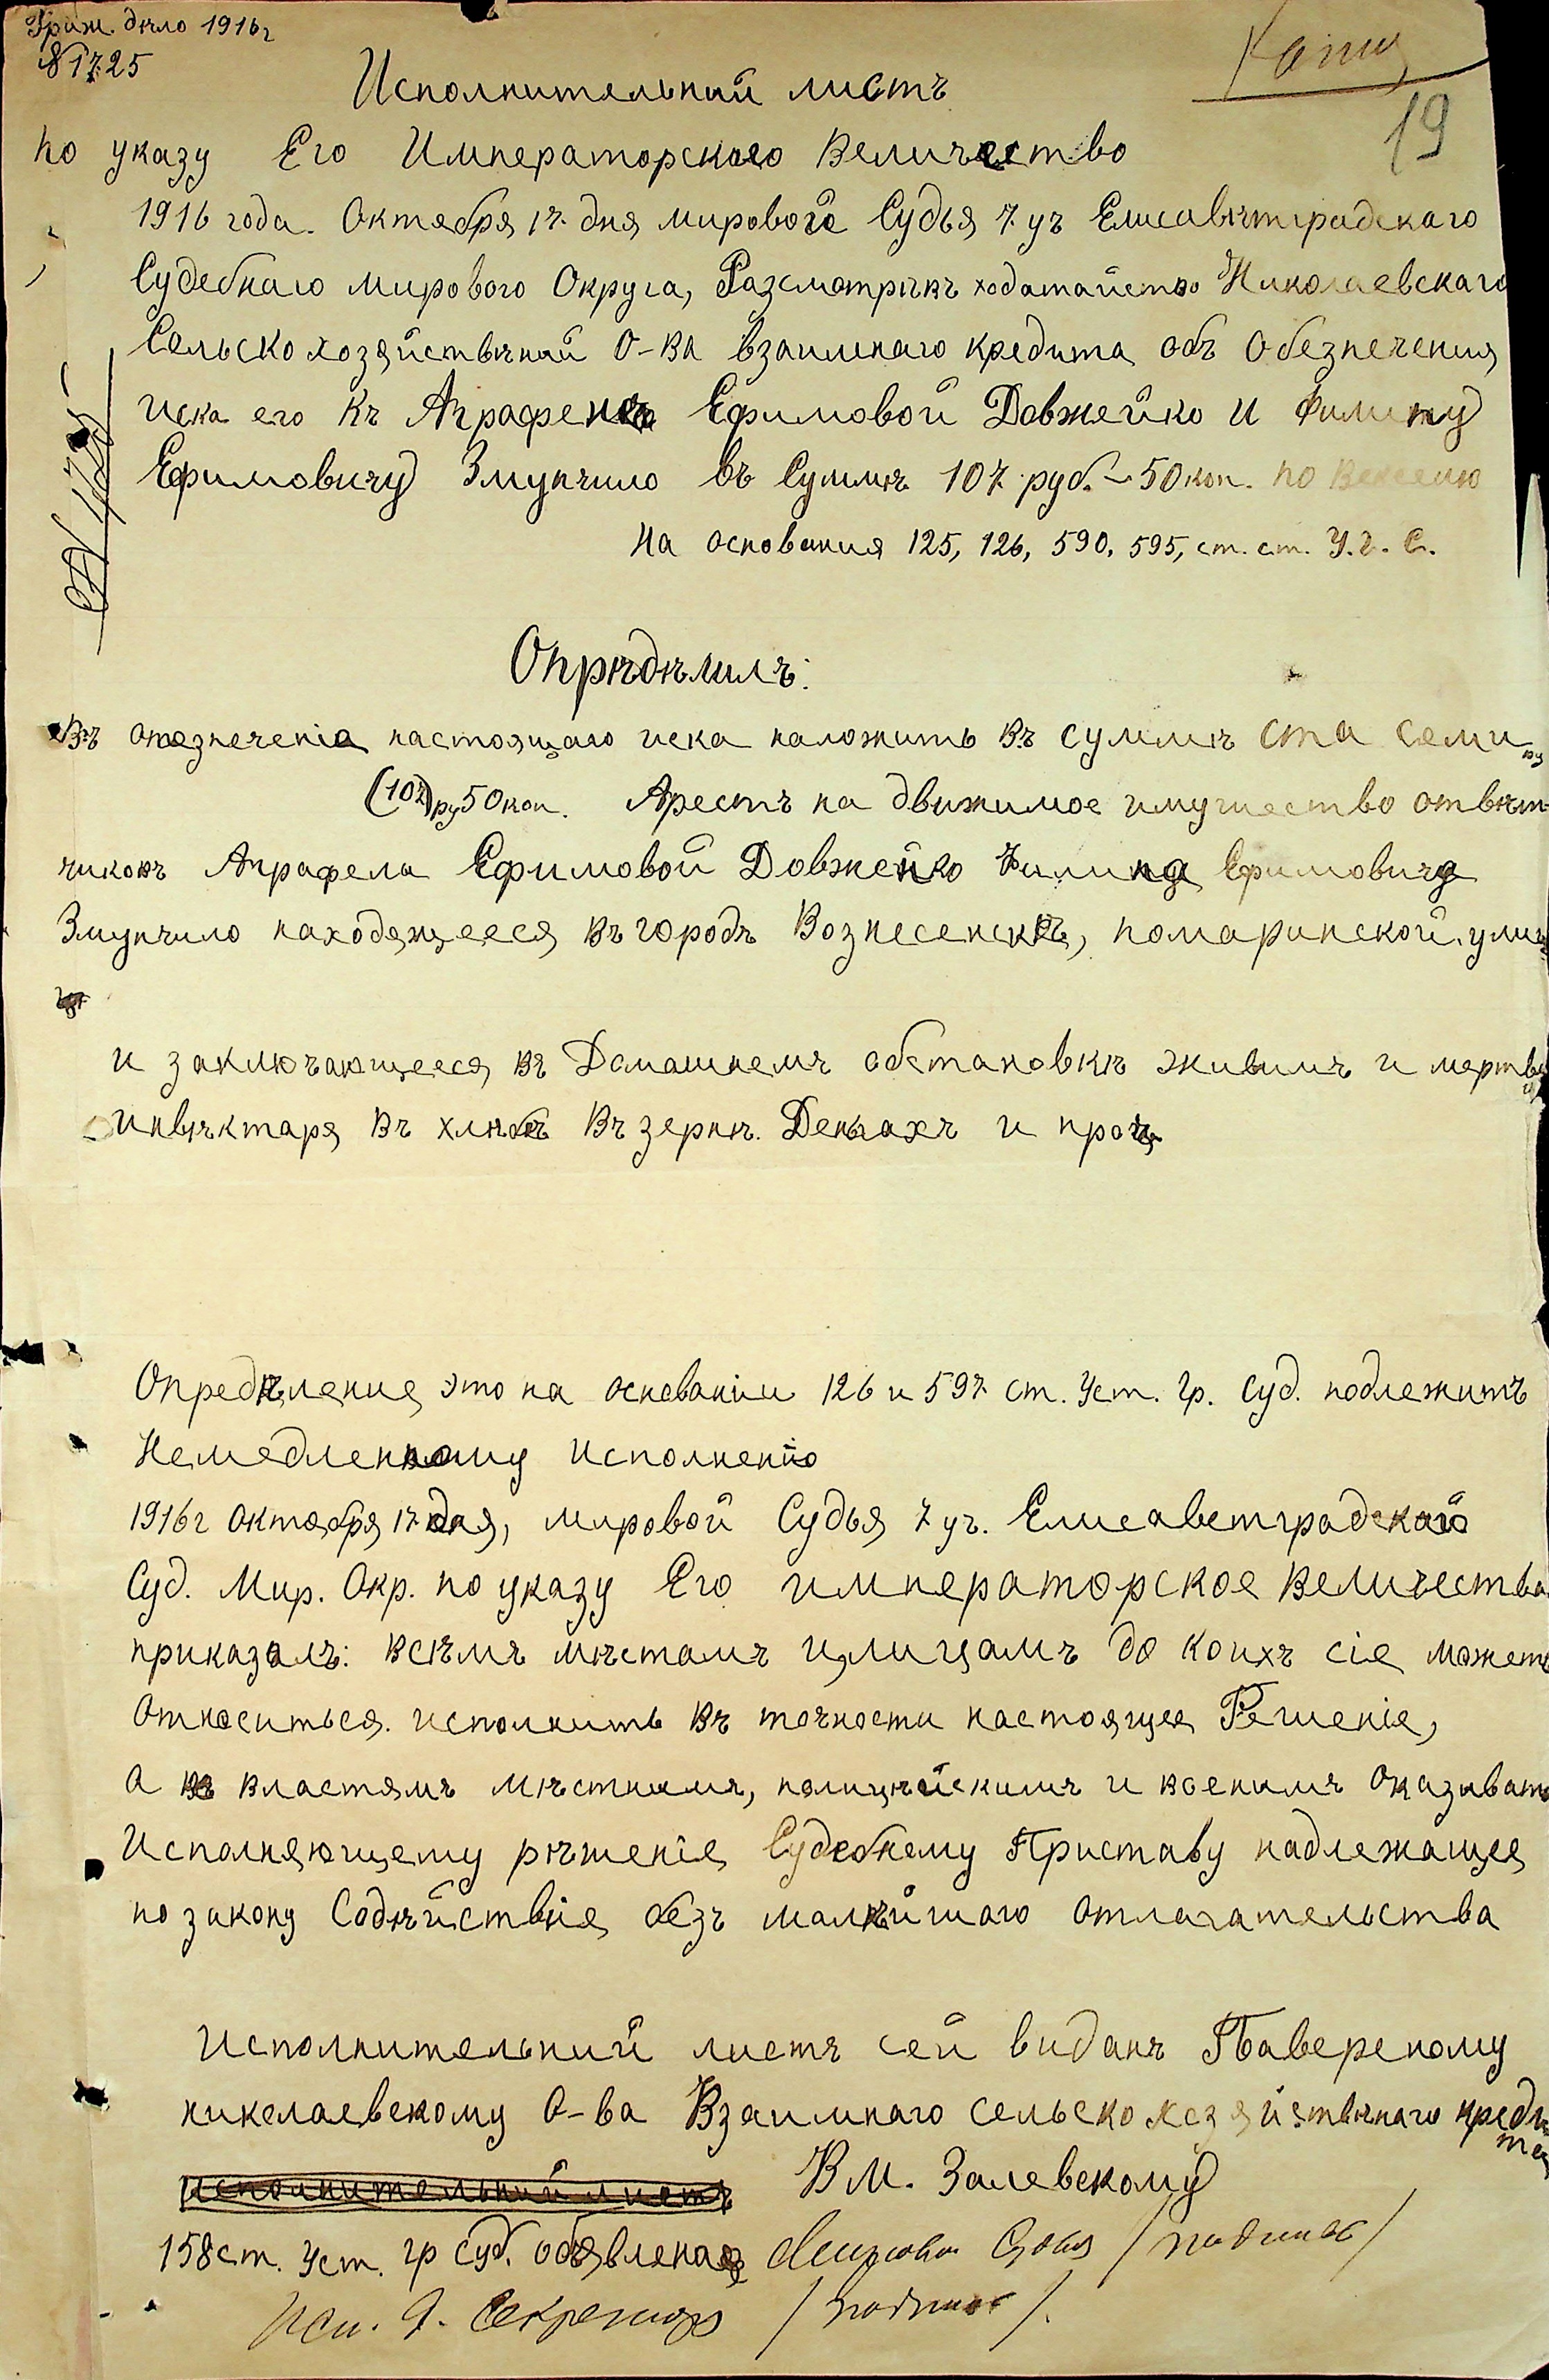 Граж. дѣло 1916г
№ 1725
Копия
19
Исполнительний листъ
по указу Его Императорскаго Величество
1916 года. Октября 17 дня мировой Судья 7 уч Елисавѣтградскаго
Судебнаго мирового Округа, Разсмотрѣвъ ходатайство Николаевскаго
Сельскохозяйствѣний О-ва взаимнаго кредита объ обезпечения
иска его къ Аграфенѣ Ефимовой Довжейко и Филипу
Ефимовичу Змунчило въ Суммѣ 107 руб. 50 коп. по векселю
На основания 125, 126, 590, 595, ст. ст. У. г. С.
Опрѣдѣлилъ:
Въ обезпеченіе настоящаго иска наложить въ суммѣ ста семи
(107) ру 50 коп. Арестъ на движимое имущество отвѣт-
чиковъ Аграфела Ефимовой Довжейко Филипа Ефимовича
Змунчило находящееся въ городѣ Вознесенскѣ, помаринской улиц
и заключающееся въ Домашнемъ обстановкѣ живимъ и мертв
инвѣктаря въ хлѣбѣ въ зернѣ. Деньгахъ и проч
Определение это на основаніи 126 и 597 ст. Уст. Гр. Суд. подлежитъ
Немедленному исполненію
1916г Октября 17 дня, мировой Судья 7 уч. Елисаветградскаго
Суд. Мир. Окр. по указу Его императорское Величества
приказалъ: всѣмъ мѣстамъ и лицамъ до коихъ сіе можетъ
Относиться исполнить въ точности настоящее Решеніе,
а властямъ мѣстнимъ, полицѣйскимъ и военимъ оказивать
Исполняющему рѣшеніе Судебному Приставу надлежащее
по закону Содѣйствіе безъ малѣйшаго отлагательства
Исполнительний листъ сей виданъ Паверепому
николаевскому О-ва Взаимнаго сельскохозяйствѣнаго креди
та
исполнительний листъ В М. Залевскому
158 ст. Уст. гр суд. объявлена Мировой Судья /подпись/
Исп. д. Секретаря /подпись/.